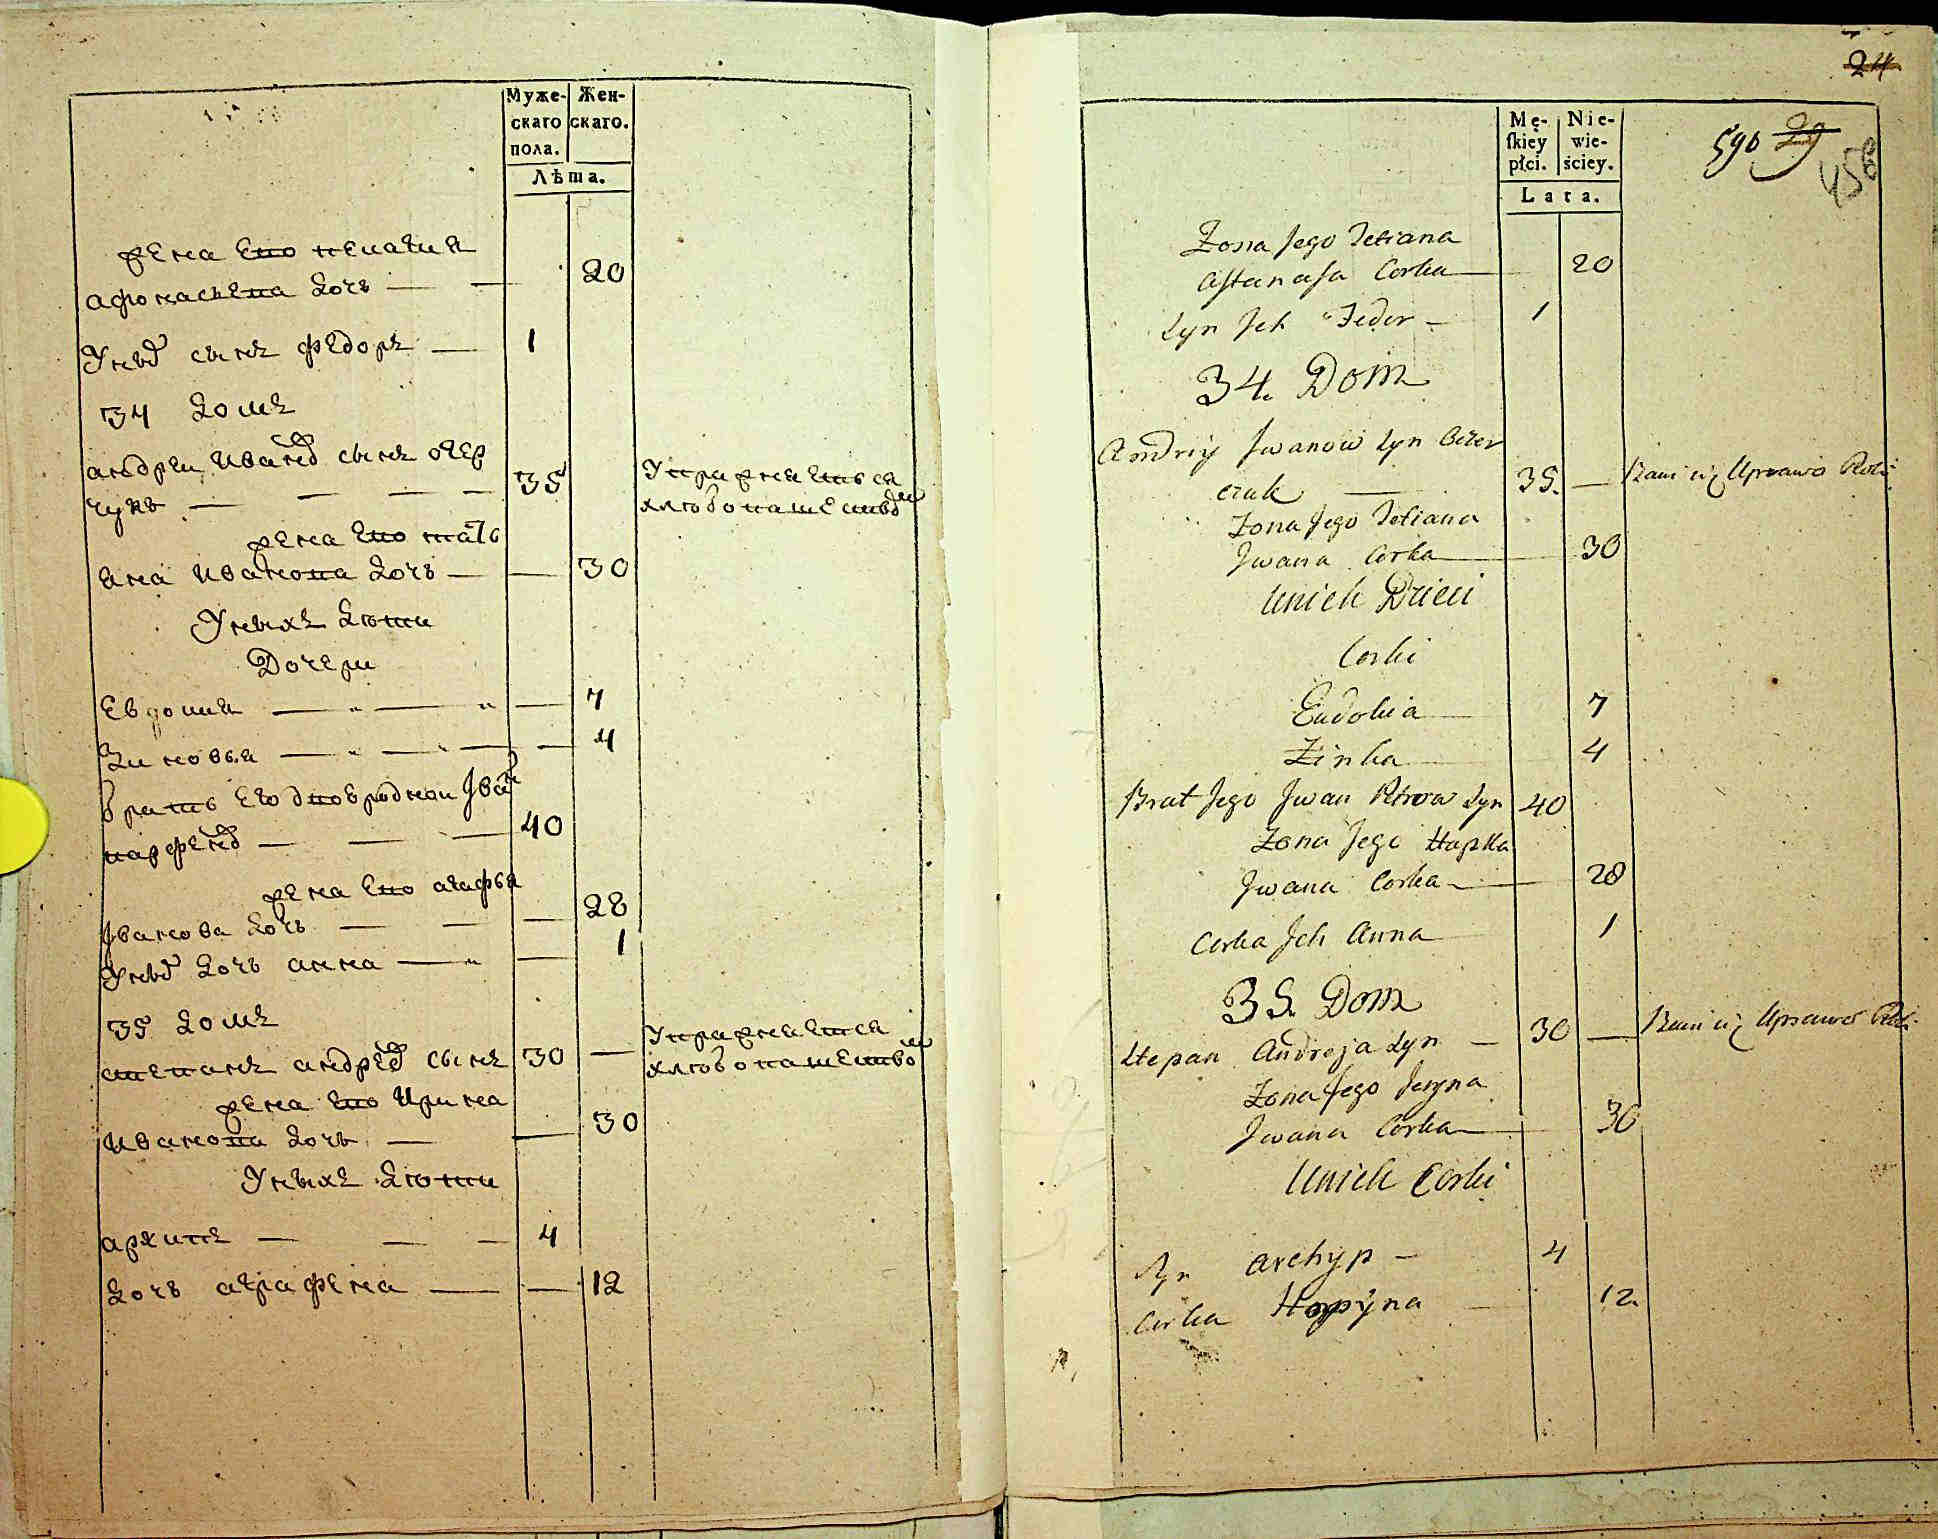 Муже-
скаго
пола.
Жен-
скаго.
Лѣта.
жена его пелагия
афонасьева дочь — 20
У нихъ сынъ федоръ — 1
34 домъ
андреи Ивановъ сынъ очер
чукъ — 35 Упражняется
хлебопашеством
жена его тать
яна Иванова дочь — 30
У нихъ дети
Дочери
Евдокия — 7
Зиновья — 4
братъ его двоюродной Иванъ
40
жена его агафья
Иванова дочь — 28
У нихъ дочь анна — 1
35 домъ
степанъ андреевъ сынъ 30 — Упражняется
хлебопашеством
жена его Ирина
Иванова дочь — 30
У нихъ дети
архипъ — 4
дочь аграфена — 12
24
Mę-
ſkiey
płci.
Nie-
wie-
ściey.
Lata.
590
29
458
Zona Jego Tetiana
Astanasa Corka — 20
Syn Jch Fedor — 1
34. Dom
Andriy Jwanow Syn Oczer
czuk — 35. — Bawi się Uprawą Roli
Zona Jego Tetiana
Jwana Corka — 30
Unich Dzieci
Corki
Eudokia — 7
Zinka 4
Brat Jego Jwan Petrow Syn 40
Zona Jego Hapka
Jwana Corka — 28
Corka Jch Anna 1
35. Dom
Stepan Andreja Syn — 30 — Bawi się Uprawą Roli
Zona Jego Jeryna
Jwana Corka — 30
Unich Corki
Syn Archyp — 4
Corka Horpyna 12